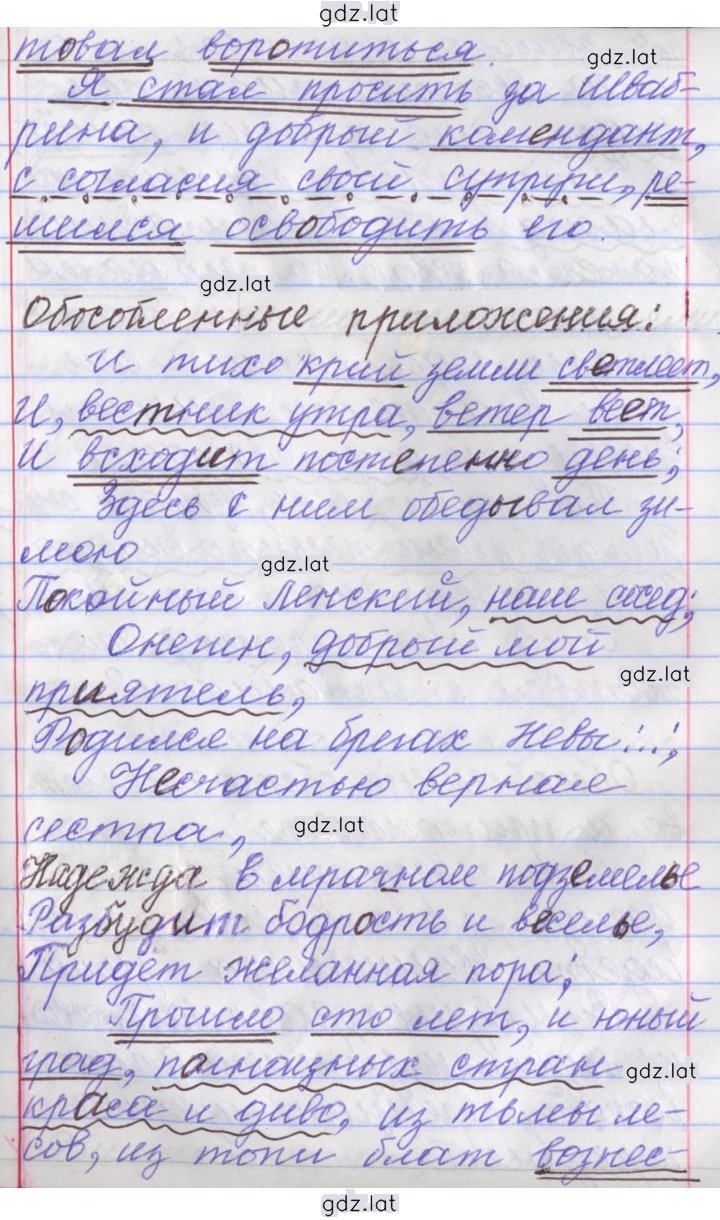 gdz.lat
товал воротиться.
gdz.lat
Я стал просить за Шваб-
рина, и добрый комендант,
с согласия своей супруги, ре-
шился освободить его.
gdz.lat
Обособленные приложения:
И тихо край земли светлеет,
И, вестник утра, ветер веет,
И всходит постепенно день;
Здесь с ним обедывал зи-
мою
gdz.lat
Покойный Ленский, наш сосед;
Онегин, добрый мой
gdz.lat
приятель,
Родился на брегах Невы...;
Несчастью верная
сестра,
gdz.lat
Надежда в мрачном подземелье
Разбудит бодрость и веселье,
Придёт желанная пора;
Прошло сто лет, и юный
град, полнощных стран
gdz.lat
краса и диво, из тьмы ле-
сов, из топи блат вознес-
gdz.lat